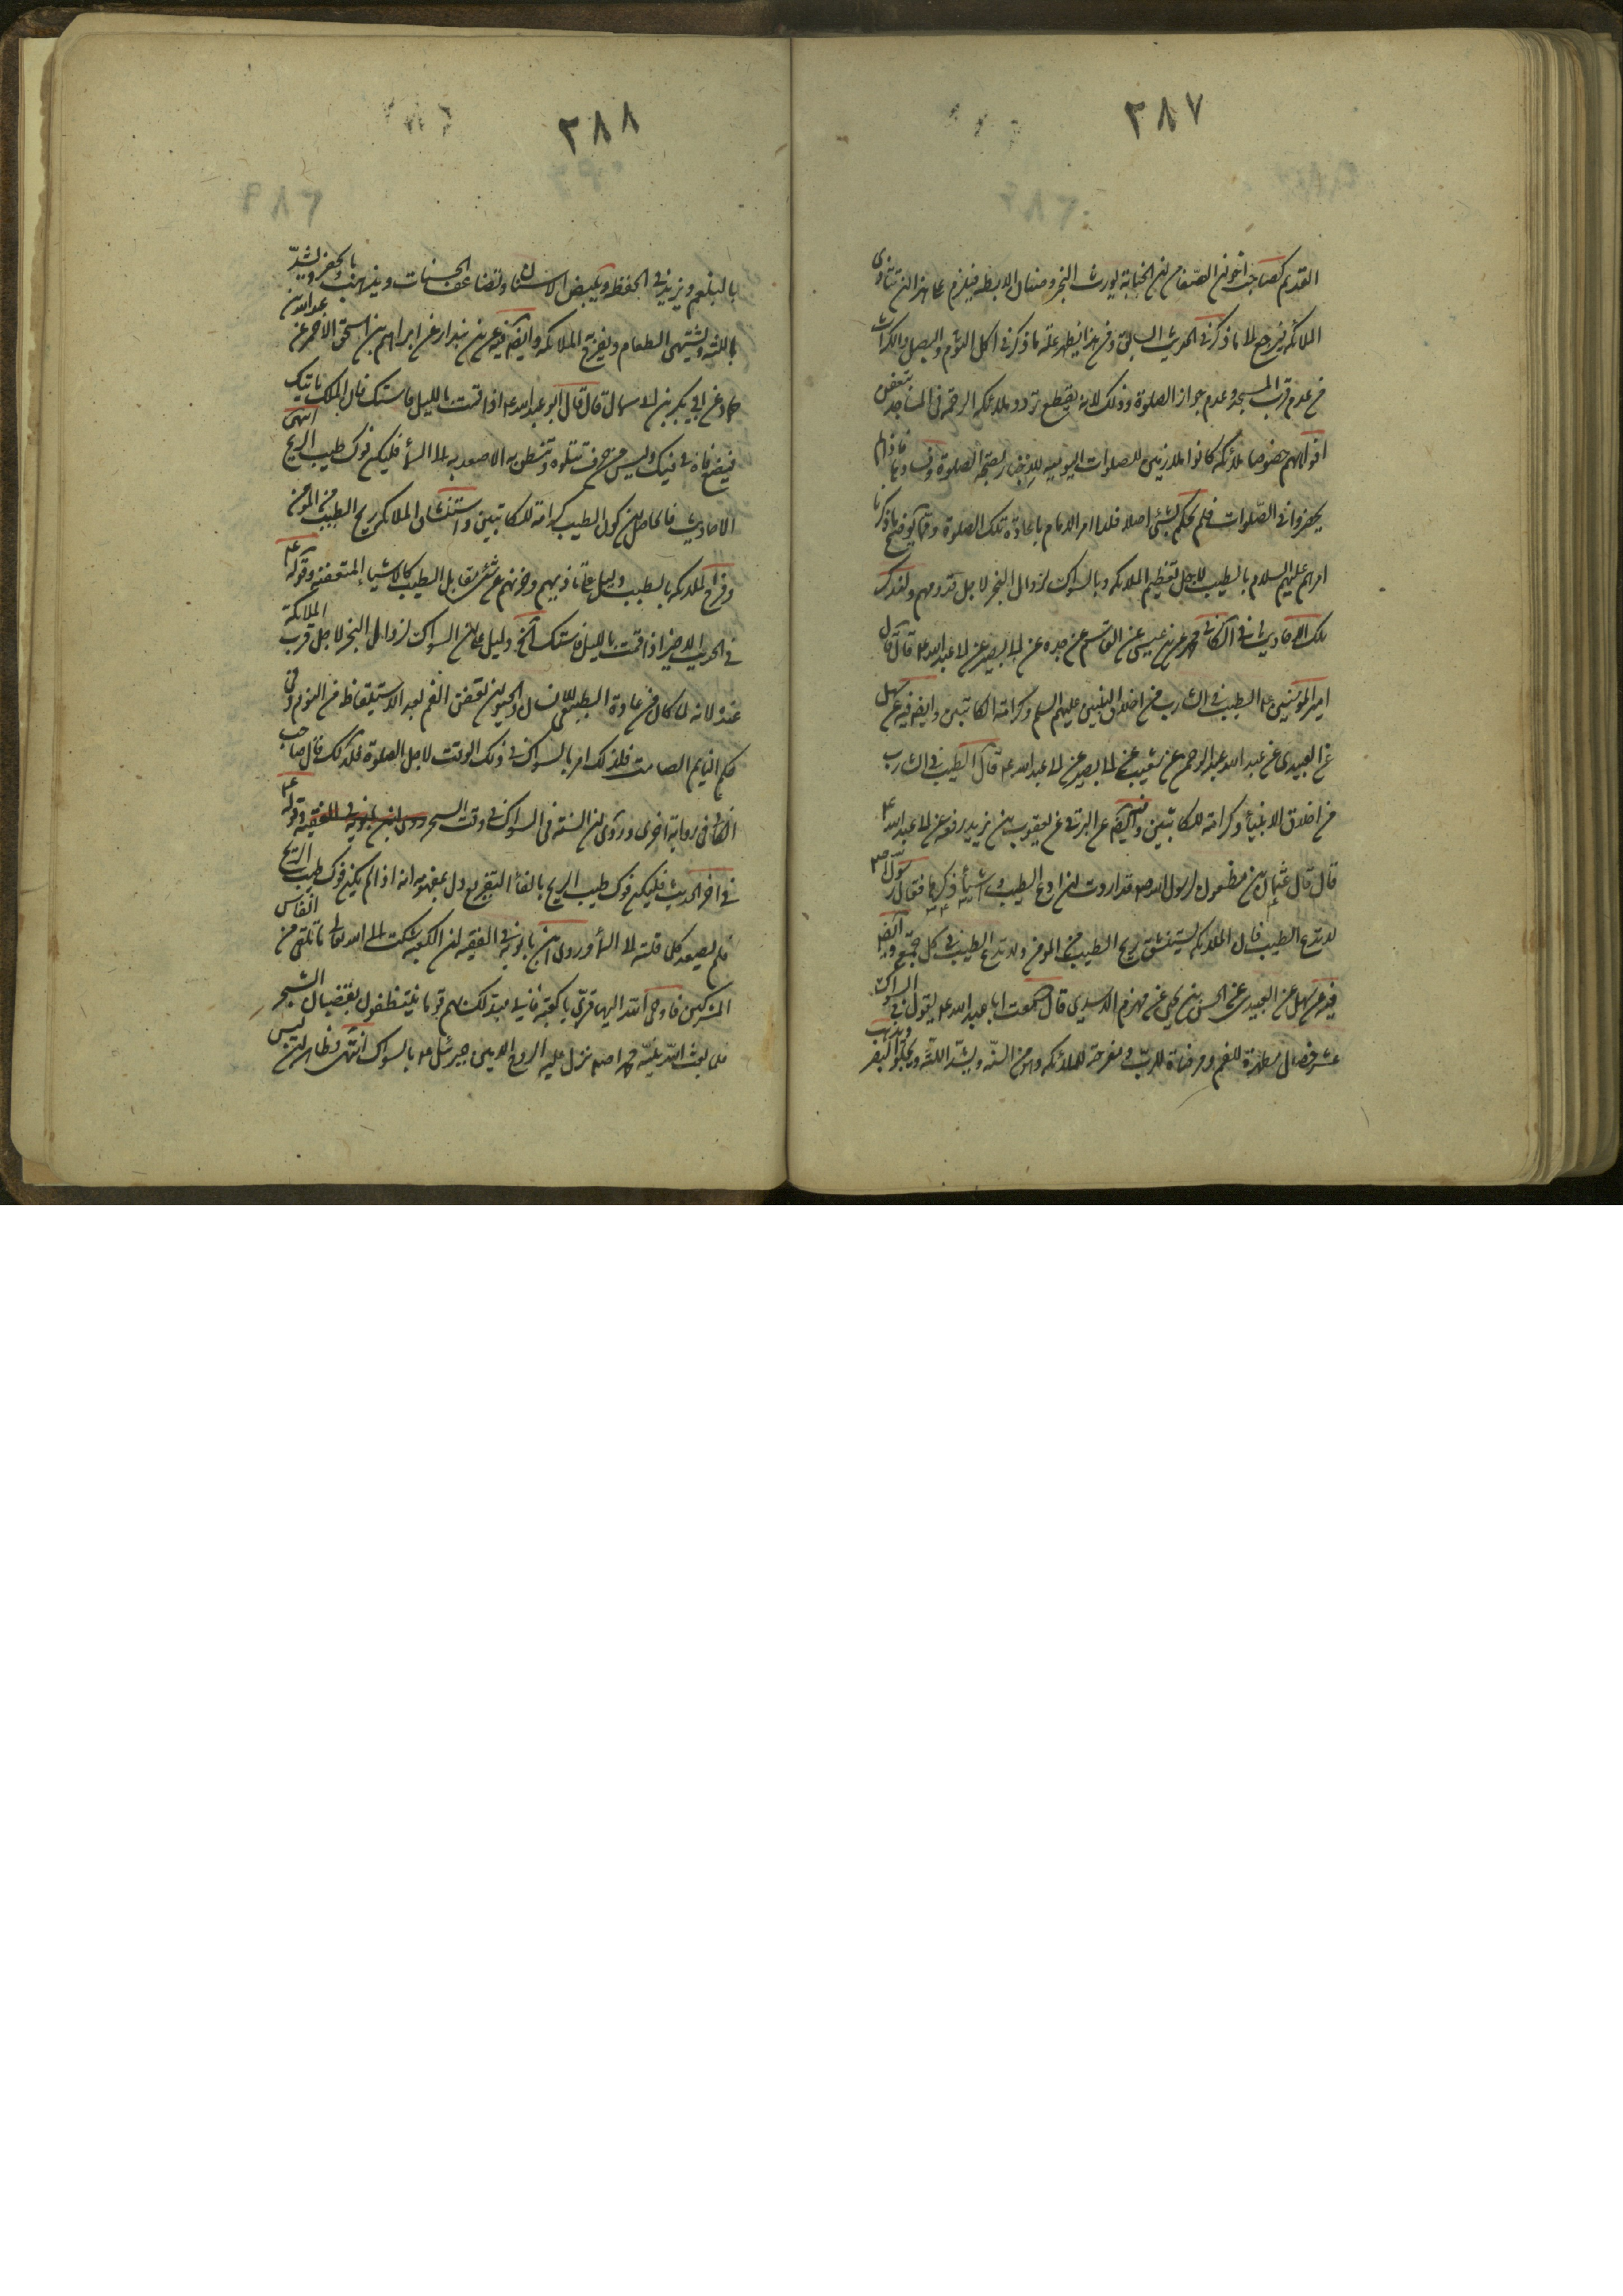 ٢٨٧
القديم كصاحب اخوان الصفا من ان الجنابة يورث البخر وصنان الابط فيلزم على هذا ان تتاذى
الملائكة ويرجع الى ما ذكر في الحديث السابق ومن هذا يظهر علة ما ذكر في اكل الثوم والبصل والكراث
من عدم قرب المسجد وعدم جواز الصلوة وذلك لانه يقطع تردد ملائكة الرحمة في المساجد بتعفن
افواههم خصوصا ملائكة كانوا ملازمين للصلوات اليومية
يحضروا في الصلوات فلم يحكم بشئ اصلا فلذا امر الامام باعادة تلك الصلوة ومما يوضح ما ذكرنا
امرهم عليهم السلام بالطيب لاجل تعظيم الملائكة وبالسواك لزوال البخر لاجل قدومهم ولنذكر
تلك الاحاديث في الكافي محمد بن عيسى عن القاسم عن جده عن ابي بصير عن ابي عبد الله ع قال قال
امير المؤمنين ع الطيب في الشارب من اخلاق النبيين عليهم السلم وكرامة الكاتبين وايضا فيه عن سهل
عن العبيدي عن عبد الله عبد الرحمن عن شعيب عن ابي بصير عن ابي عبد الله ع قال الطيب في الشارب
من اخلاق الانبياء وكرامة للكاتبين وايضا فيه عن البرقي عن يعقوب بن يزيد رفعه عن ابي عبد الله ع
قال قال عثمان بن مظعون لرسول الله ص قد اردت ان ادع الطيب واشياء ذكرها فقال رسول الله ص
لا تدع الطيب فان الملائكة يستنشق ريح الطيب من المؤمن ولا تدع الطيب في كل جمعة وايضا
فيه عن سهل عن العبيدي عن الحسن بن يحيى عن مهزم الاسدي قال سمعت ابا عبد الله ع يقول في السواك
عشر خصال مطهرة للفم ومرضاة للرب ومفرحة للملائكة وهو من السنة ويشد اللثة ويجلو البصر ويذهب
٢٨٨
بالبلغم ويزيد في الحفظ ويبيض الاسنان وتضاعف الحسنات ويذهب بالحفر ويشد
باللثة ويشتهي الطعام ويفرح الملائكة وايضا فيه عن بن بندار عن ابراهيم بن اسحق الاحمر عن عبد الله بن
حماد عن ابي بكر بن ابي سمال قال قال ابو عبد الله ع اذا قمت بالليل فاستك فان الملك ياتيك
فيضع فاه في فيك وليس من حرف تتلوه وتنطق به الا صعد به الى السماء فليكن فوك طيب الريح انتهى
الاحاديث فالحاصل من كون الطيب كرامة للكاتبين واستنشاق الملائكة ريح الطيب من المؤمن
وفرح الملائكة بالطيب دليل على تاذيهم وحزنهم عن شئ مقابل الطيب كالاشياء المتعفنة وقوله ع
في الحديث الاخير اذا قمت بالليل فاستك الخ دليل على ان السواك لزوال البخر لاجل قرب الملائكة
عنده لانه لما كان من عادة الطبيعي للانسان والحيوان تعفن الفم بعد الاستيقاظ من النوم وفي
حكم النايم الصامت فلذلك امر بالسواك في ذلك الوقت لاجل الصلوة فلذلك قال صاحب
الكافي في رواية اخرى وروى ان السنة في السواك في وقت السحر وروى ابن بابويه في الفقيه وقوله ع
في اخر الحديث فليكن فوك طيب الريح بالفاء التفريع دل بمفهومه انه اذا لم يكن فوك طيب الريح
فلم يصعد كل قلته الى السماء وروى ابن بابويه في الفقيه ان الكعبة شكت الى الله تعالى ما تلقى من انفاس
المشركين فاوحى الله اليها قري يا كعبة فاني مبدلك بهم قوما يتنظفون بقضبان الشجر
فلما بعث الله نبيه محمدا ص نزل عليه الروح الامين جبرئيل ع بالسواك انتهى وظاهر ان ليس